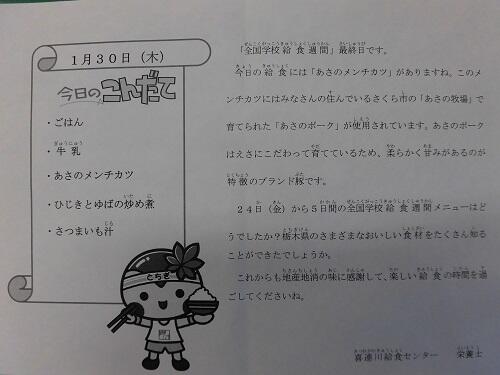 1月30日（木）
今日のこんだて
・ごはん
・牛乳
・あさのメンチカツ
・ひじきとゆばの炒め煮
・さつまいも汁
とちぎ
「全国学校給食週間」最終日です。
今日の給食には「あさのメンチカツ」がありますね。このメ
ンチカツにはみなさんの住んでいるさくら市の「あさの牧場」で
育てられた「あさのポーク」が使用されています。あさのポーク
はえさにこだわって育てているため、柔らかく甘みがあるのが
特徴のブランド豚です。
24日（金）から5日間の全国学校給食週間メニューはど
うでしたか？栃木県のさまざまなおいしい食材をたくさん知る
ことができたでしょうか。
これからも地産地消の味に感謝して、楽しい給食の時間を過
ごしてくださいね。
喜連川給食センター　栄養士